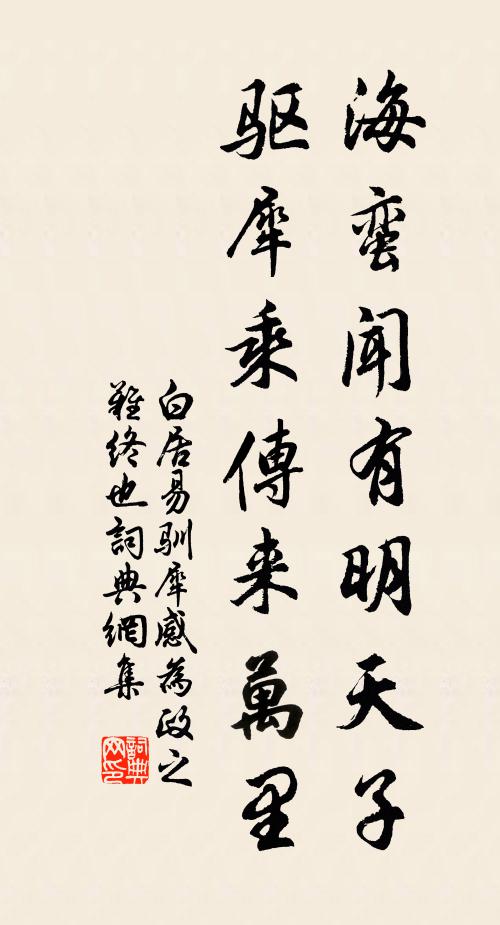 海蛮闻有明天子
驱犀乘傳来萬里
白居易驯犀感為政之
難终也詞典網集
詞典
网印